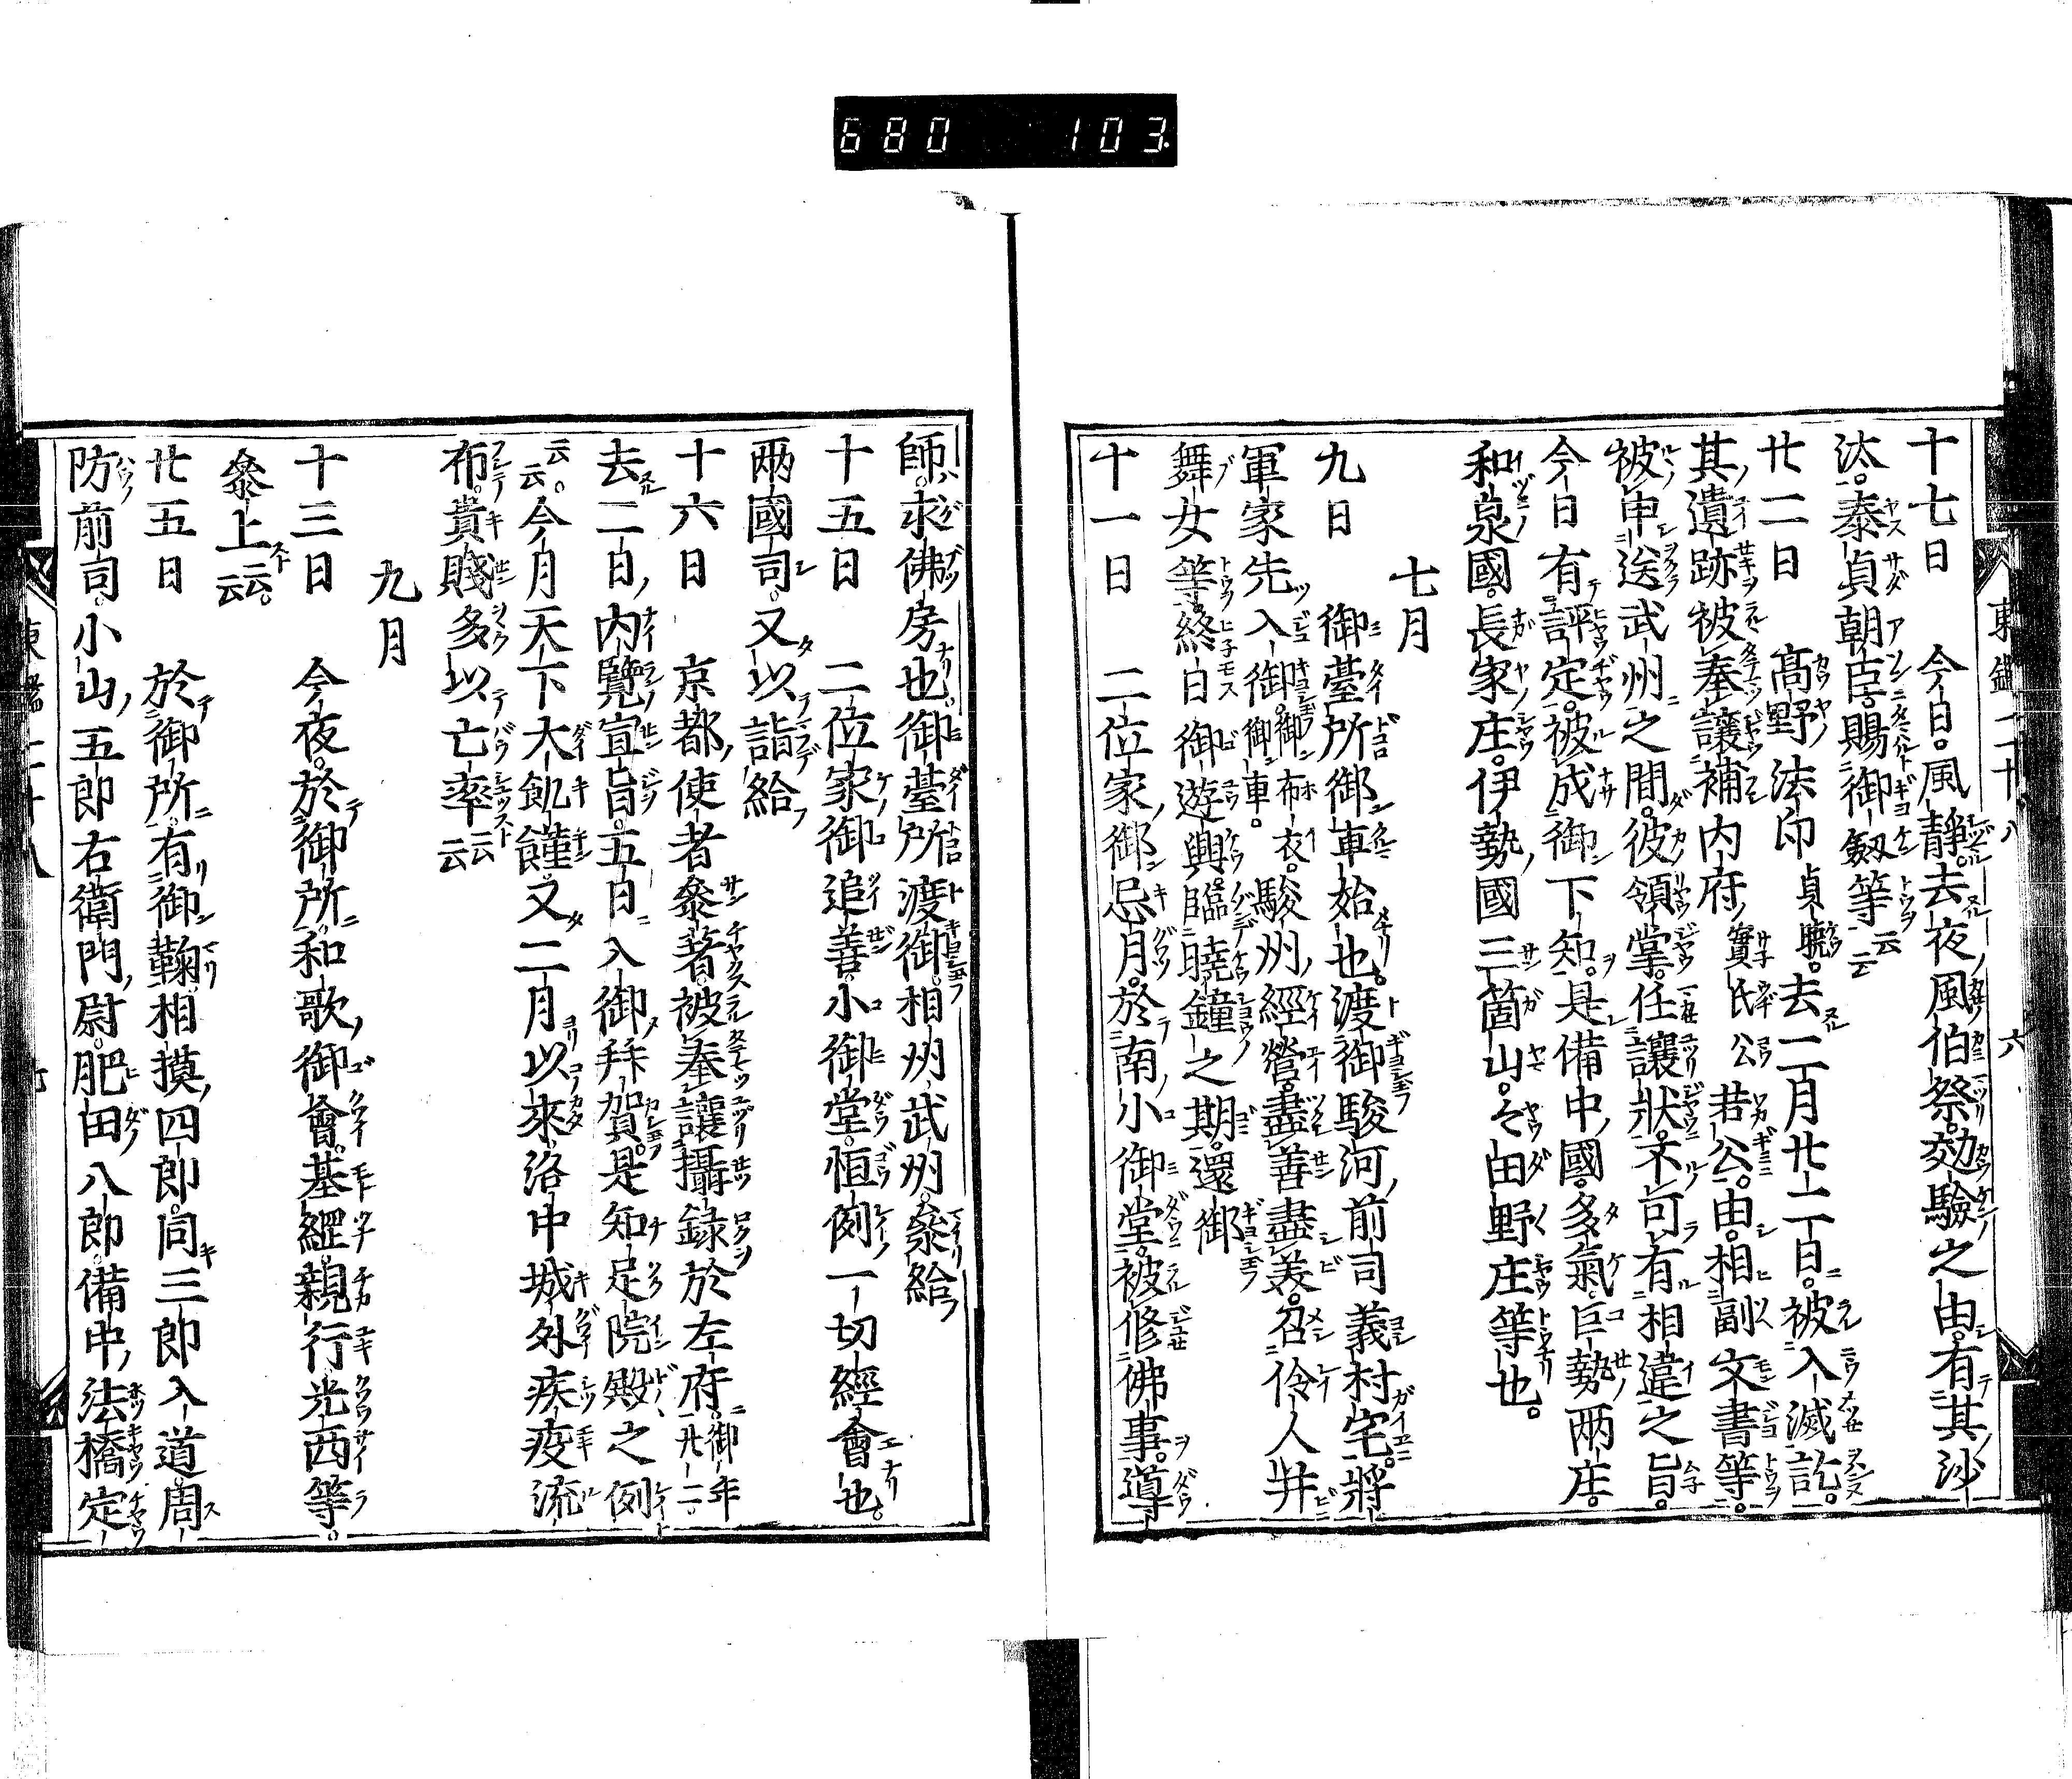 680 103
東鑑二十八 六
十七日 今日。風靜。去夜風伯祭。効驗之由。有其沙
汰。泰貞朝臣。賜御劔等云云
廿二日 髙野法印貞曉。去二月廿二日。被入滅訖。
其遺跡被奉讓補内府實氏公若公。由。相副文書等。
被申送武州之間。彼領掌。任讓狀。不可有相違之旨。
今日有評定。被成御下知。是備中國。多氣。巨勢兩庄。
和泉國。長家庄。伊勢國三箇山。々田野庄等也。
七月
九日 御臺所御車始也。渡御駿河前司義村宅。將
軍家先入御。御布衣。御車。駿州經營。盡善盡美。召伶人并
舞女等。終日御遊興。臨曉鐘之期。還御
十一日 二位家御忌月。於南小御堂。被修佛事。導
師。求佛房也。御臺所渡御。相州武州。參給
十五日 二位家御追善。小御堂。恒例一切經會也。
兩國司。又以詣給
十六日 京都使者參著。被奉讓攝錄於左府。御年廿二。
去二日。内覽宣旨。五日入御拜賀。是知足院殿之例
云云。今月天下大飢饉。又二月以來。洛中城外疾疫流
布。貴賤多以亡率云云
九月
十三日 今夜。於御所。和歌御會。基綱。親行光西等。
參上云云。
廿五日 於御所。有御鞠。相摸四郎。同三郎入道。周
防前司。小山五郎右衛門尉。肥田八郎。備中法橋定